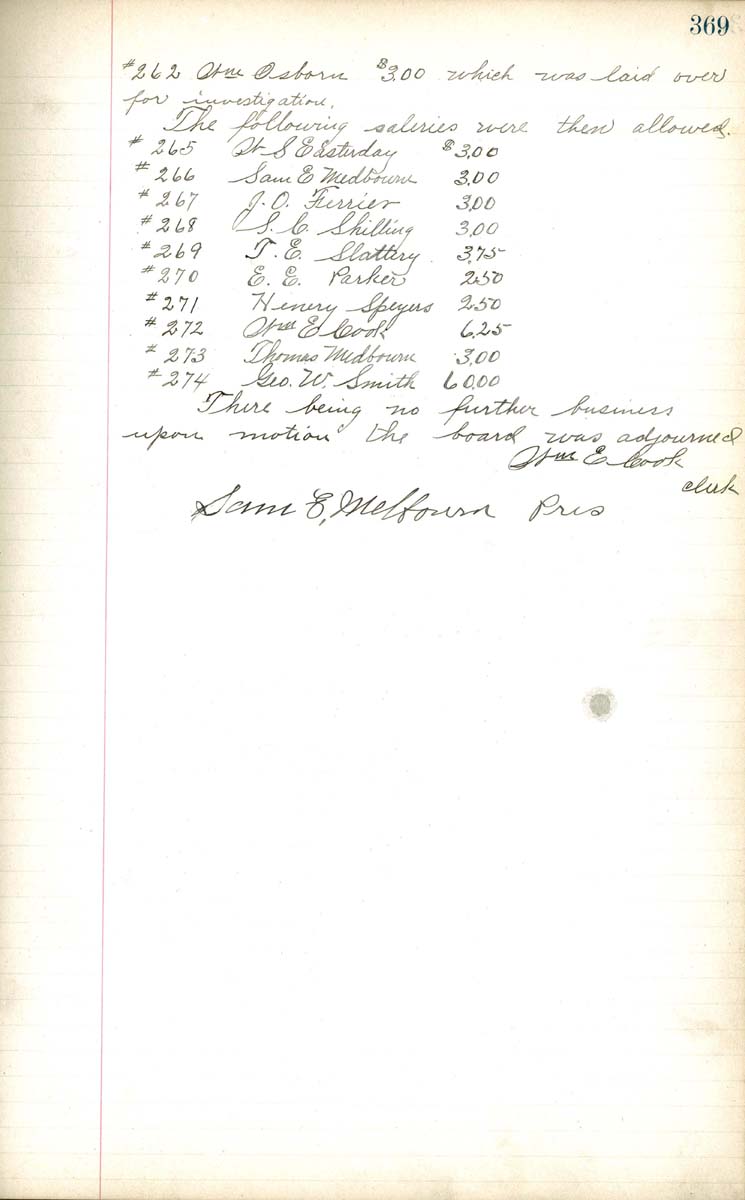 369
#262 Wm Osborn $3.00 which was laid over
for investigation.
The following saleries were then allowed.
#265 W S Easterday $3.00
#266 Sam E Medbourn 3.00
#267 J. O. Ferrier 3.00
#268 S. C. Shilling 3.00
#269 T. E. Slattery 3.75
#270 E. E. Parker 2.50
#271 Henery Speyers 2.50
#272 Wm E Cook 6.25
#273 Thomas Medbourn 3.00
#274 Geo. W. Smith 60.00
There being no further business
upon motion the board was adjourned
Wm E Cook
clerk
Sam E. Medbourn Pres